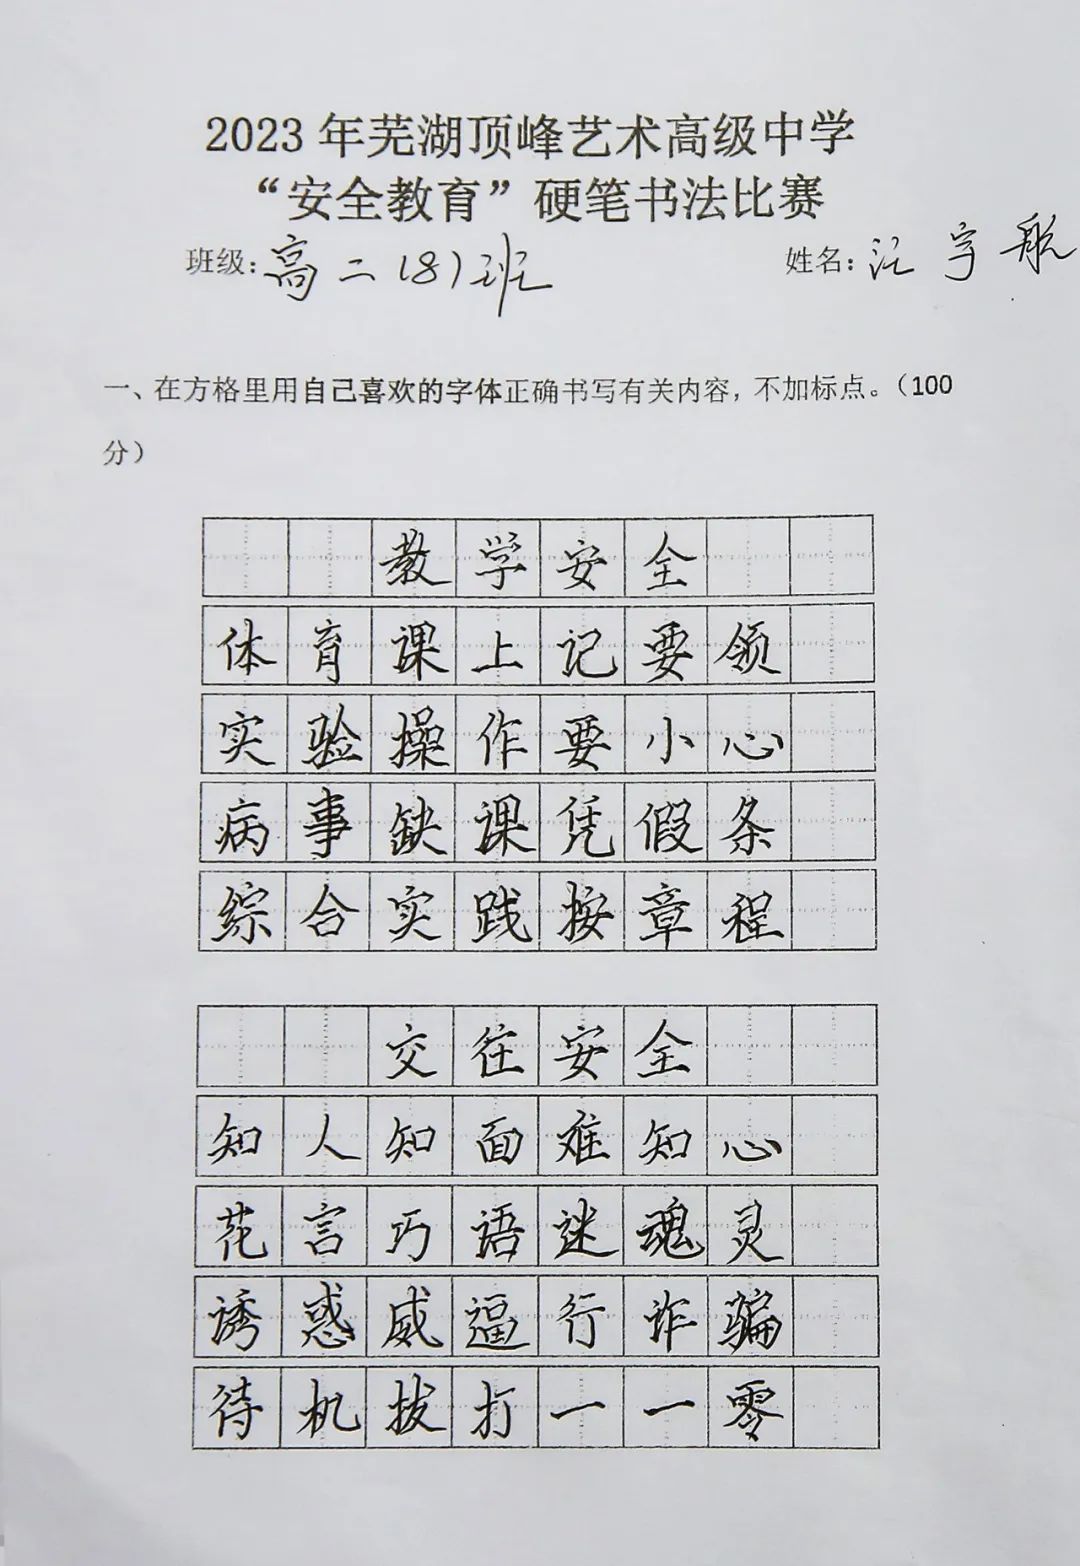 2023年芜湖顶峰艺术高级中学
“安全教育”硬笔书法比赛
班级：高二(8)班 姓名：汪宇航
一、在方格里用自己喜欢的字体正确书写有关内容，不加标点。（100
分）
教学安全
体育课上记要领
实验操作要小心
病事缺课凭假条
综合实践按章程
交往安全
知人知面难知心
花言巧语迷魂灵
诱惑威逼行诈骗
待机拔打一一零